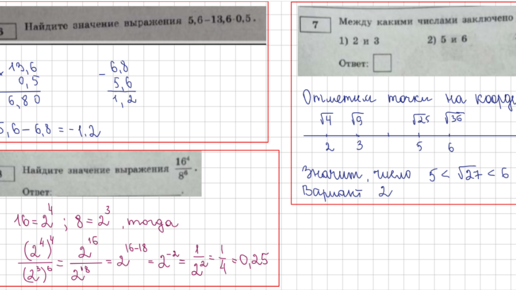 6 Найдите значение выражения 5,6−13,6·0,5.
13,6
0,5
6,80
6,8
− 5,6
1,2
5,6 − 6,8 = −1,2
Найдите значение выражения 16⁴/8⁶.
Ответ:
16=2⁴; 8=2³, тогда
(2⁴)⁴/(2³)⁶ = 2¹⁶/2¹⁸ = 2¹⁶⁻¹⁸ = 2⁻² = 1/2² = 1/4 = 0,25
7 Между какими числами заключено
1) 2 и 3 2) 5 и 6
Ответ:
Отметим точки на коорди
√4 √9 √25 √36
2 3 5 6
Значит, число 5 < √27 < 6
Вариант 2